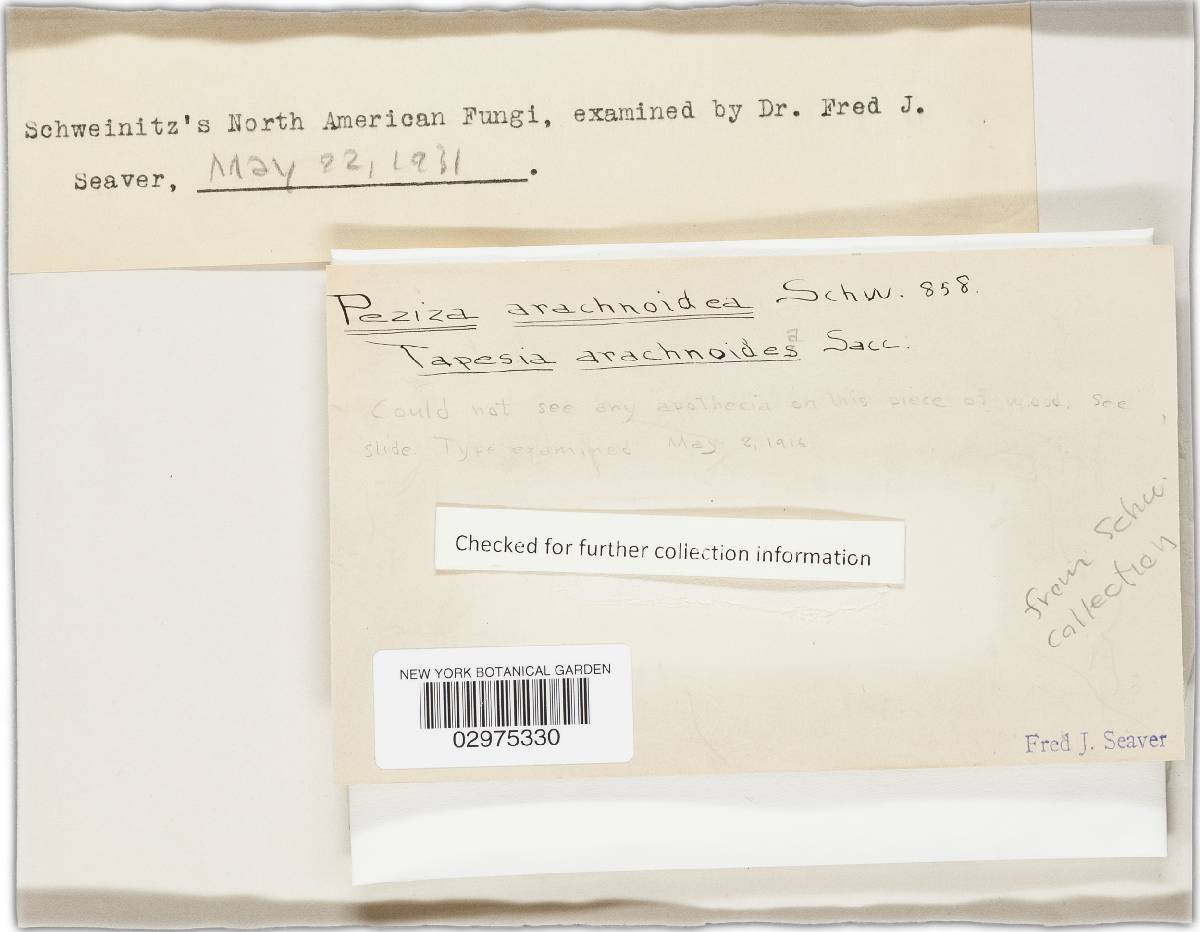 Schweinitz's North American Fungi, examined by Dr. Fred J.
Seaver, May 22, 1931.
Peziza arachnoidea Schw. 858.
Tapesia arachnoides a Sacc.
Could not see any apothecia on this piece of wood. See
slide. Type examined May 2, 1916
Checked for further collection information
from Schw.
collection
NEW YORK BOTANICAL GARDEN
02975330
Fred J. Seaver